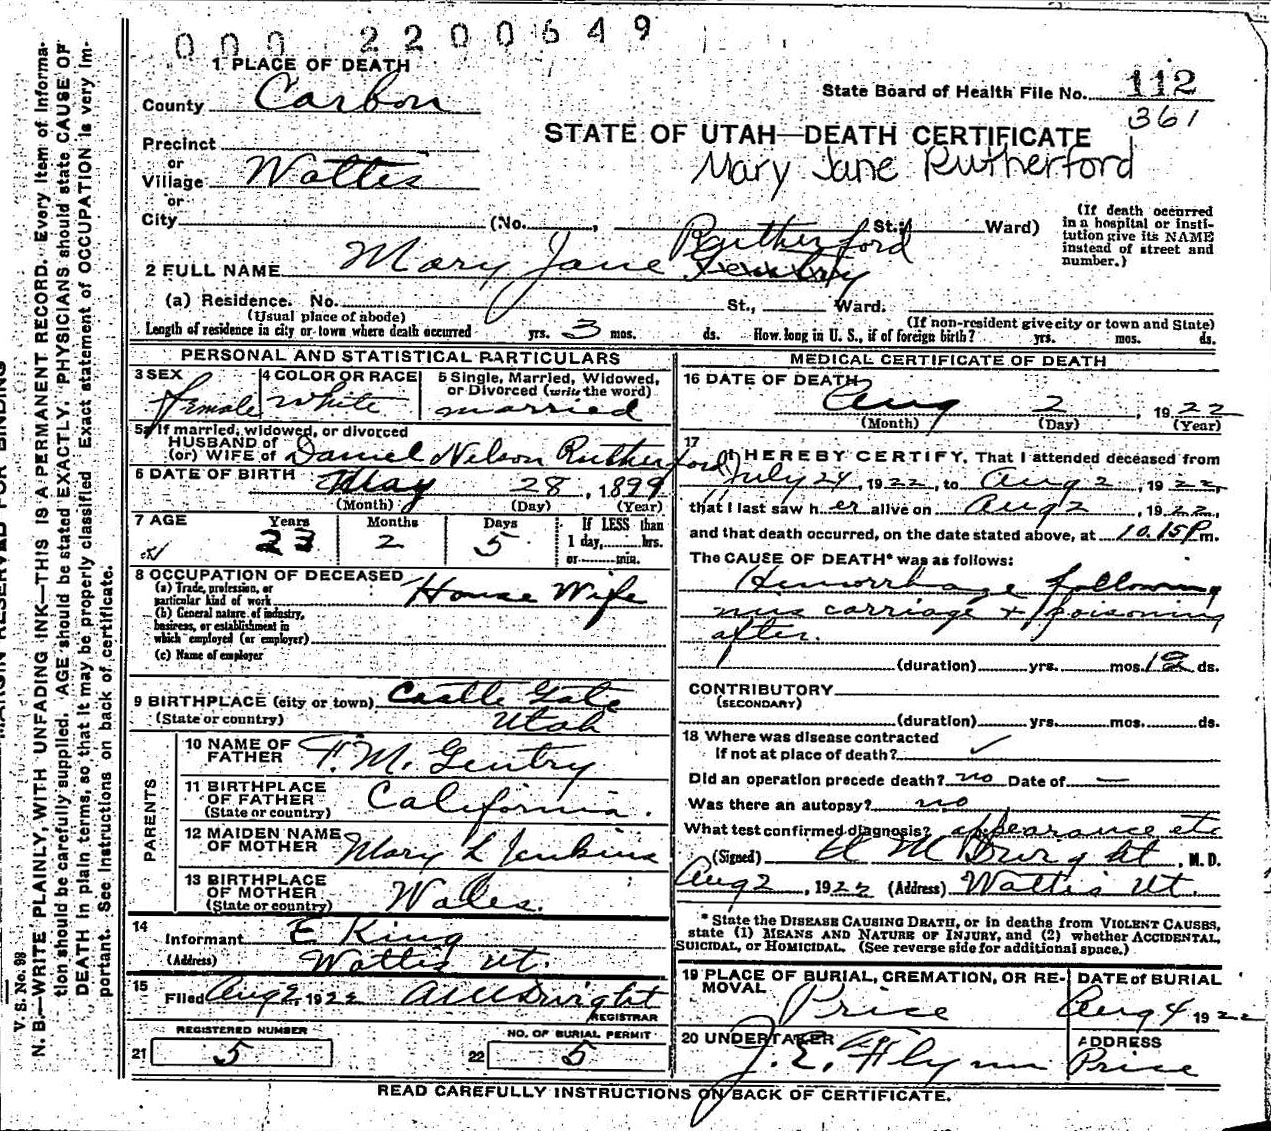 000 2200649
1 PLACE OF DEATH
County Carbon
State Board of Health File No. 112
361
STATE OF UTAH—DEATH CERTIFICATE
Mary Jane Rutherford
Precinct
or
Village Wattis
or
City (No. , St.; Ward)
(If death occurred in a hospital or insti-
tution give its NAME instead of street and number.)
Rutherford
2 FULL NAME Mary Jane
(a) Residence. No. St., Ward.
(Usual place of abode) (If non-resident give city or town and State)
Length of residence in city or town where death occurred yrs. 3 mos. ds. How long in U. S., if of foreign birth? yrs. mos. ds.
PERSONAL AND STATISTICAL PARTICULARS
3 SEX female
4 COLOR OR RACE white
5 Single, Married, Widowed, or Divorced (write the word) married
5a If married, widowed, or divorced
HUSBAND of
(or) WIFE of Daniel Nelson Rutherford
6 DATE OF BIRTH May 28, 1899
(Month) (Day) (Year)
7 AGE Years 23 Months 2 Days 5 If LESS than 1 day, hrs. or min.
8 OCCUPATION OF DECEASED
(a) Trade, profession, or particular kind of work House Wife
(b) General nature of industry, business, or establishment in which employed (or employer)
(c) Name of employer
9 BIRTHPLACE (city or town) Castle Gate
(State or country) Utah
PARENTS
10 NAME OF FATHER F. M. Gentry
11 BIRTHPLACE OF FATHER (State or country) California.
12 MAIDEN NAME OF MOTHER Mary L Jenkins
13 BIRTHPLACE OF MOTHER (State or country) Wales.
14 Informant E King
(Address) Wattis Ut.
15 Filed Aug 2, 1922 Dwight
REGISTRAR
REGISTERED NUMBER NO. OF BURIAL PERMIT
21 5 22 5
MEDICAL CERTIFICATE OF DEATH
16 DATE OF DEATH Aug 2, 1922
(Month) (Day) (Year)
17 I HEREBY CERTIFY, That I attended deceased from
July 24, 1922, to Aug 2, 1922,
that I last saw her alive on Aug 2, 1922,
and that death occurred, on the date stated above, at 10.15 P m.
The CAUSE OF DEATH* was as follows:
Hemorrhage following
miscarriage + poisoning
after.
(duration) yrs. mos. ds.
CONTRIBUTORY
(SECONDARY)
(duration) yrs. mos. ds.
18 Where was disease contracted
If not at place of death? ✓
Did an operation precede death? no Date of —
Was there an autopsy? no
What test confirmed diagnosis? appearance etc
(Signed) Dwight, M. D.
Aug 2, 1922 (Address) Wattis Ut.
* State the DISEASE CAUSING DEATH, or in deaths from VIOLENT CAUSES,
state (1) MEANS AND NATURE OF INJURY, and (2) whether ACCIDENTAL,
SUICIDAL, or HOMICIDAL. (See reverse side for additional space.)
19 PLACE OF BURIAL, CREMATION, OR RE-
MOVAL Price
DATE of BURIAL Aug 4 1922
20 UNDERTAKER J. E. Flynn
ADDRESS Price
READ CAREFULLY INSTRUCTIONS ON BACK OF CERTIFICATE.
V. S. No. 98
MARGIN RESERVED FOR BINDING
N. B.—WRITE PLAINLY, WITH UNFADING INK—THIS IS A PERMANENT RECORD. Every item of informa-
tion should be carefully supplied. AGE should be stated EXACTLY. PHYSICIANS should state CAUSE OF
DEATH in plain terms, so that it may be properly classified. Exact statement of OCCUPATION is very im-
portant. See instructions on back of certificate.